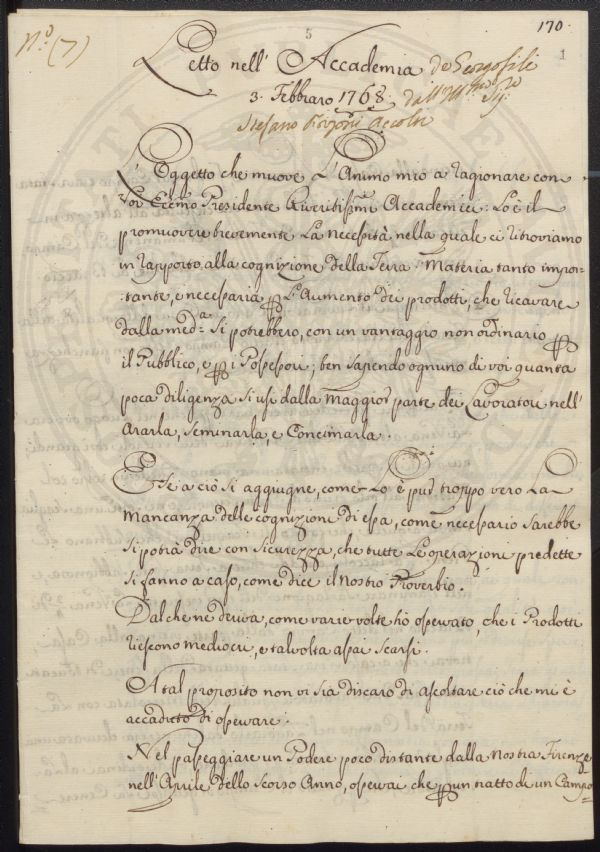 170.
N.º (7)
5
1
Letto nell' Accademia de Georgofili
3. Febbraro 1768. dall' Ill.mo Sig.re
Stefano
L'Oggetto che muove L'Animo mio a ragionare con
Voi Ecc.mo Presidente Riveritissimi Accademici: Lo è il
promuovere brevemente La necessità nella quale ci ritroviamo
in rapporto alla cognizione della Terra. Materia tanto impor-
:tante, e necessaria p L'Aumento dei prodotti, che ricavare
dalla med.a si potrebbero, con un vantaggio non ordinario p
il Pubblico, e p i Possessori; ben sapendo ognuno di voi quanta
poca diligenza si usi dalla maggior parte dei Lavoratori nell'
Ararla, Seminarla, e Concimarla.
E se a ciò si aggiugne, come Lo è pur troppo vero La
Mancanza delle cognizioni di essa, come necessario sarebbe
si potrà dire con sicurezza, che tutte Le operazioni predette
si fanno a caso, come dice il Nostro Proverbio.
Dal che ne deriva, come varie volte hò osservato, che i Prodotti
riescono mediocri, e talvolta assai scarsi.
A tal proposito non vi sia discaro di ascoltare ciò che mi è
accaduto di osservare.
Nel passeggiare un Podere poco distante dalla Nostra Firenze
nell'Aprile dello scorso Anno, osservai che p un tratto di un Campo